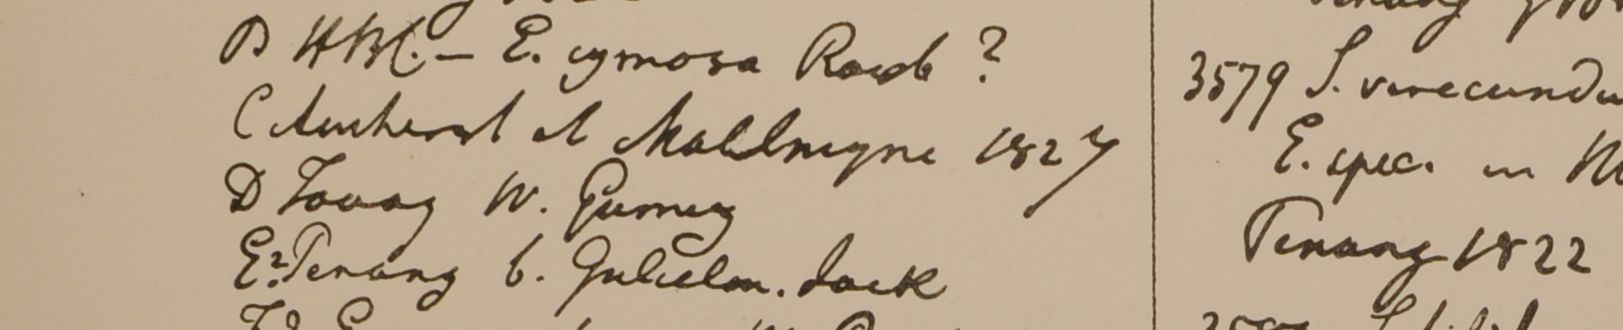 B HBC. – E. cymosa Roxb ?
C Amherst et Moalmyne 1827
D Tavoy W. Gomez
E? Penang b. Gulielm. Jack
3579 S. verecundu
E. spec. in
Penang 1822